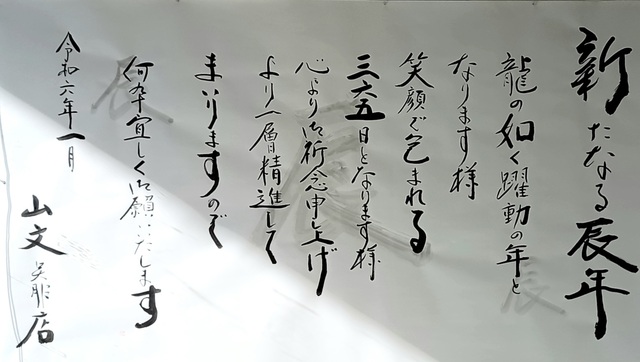 新たなる辰年
龍の如く躍動の年と
なります様
笑顔で包まれる
三六五日となります様
心より御祈念申し上げ
より一層精進して
まいりますので
何卒宜しく御願いたします
令和六年一月
山文呉服店